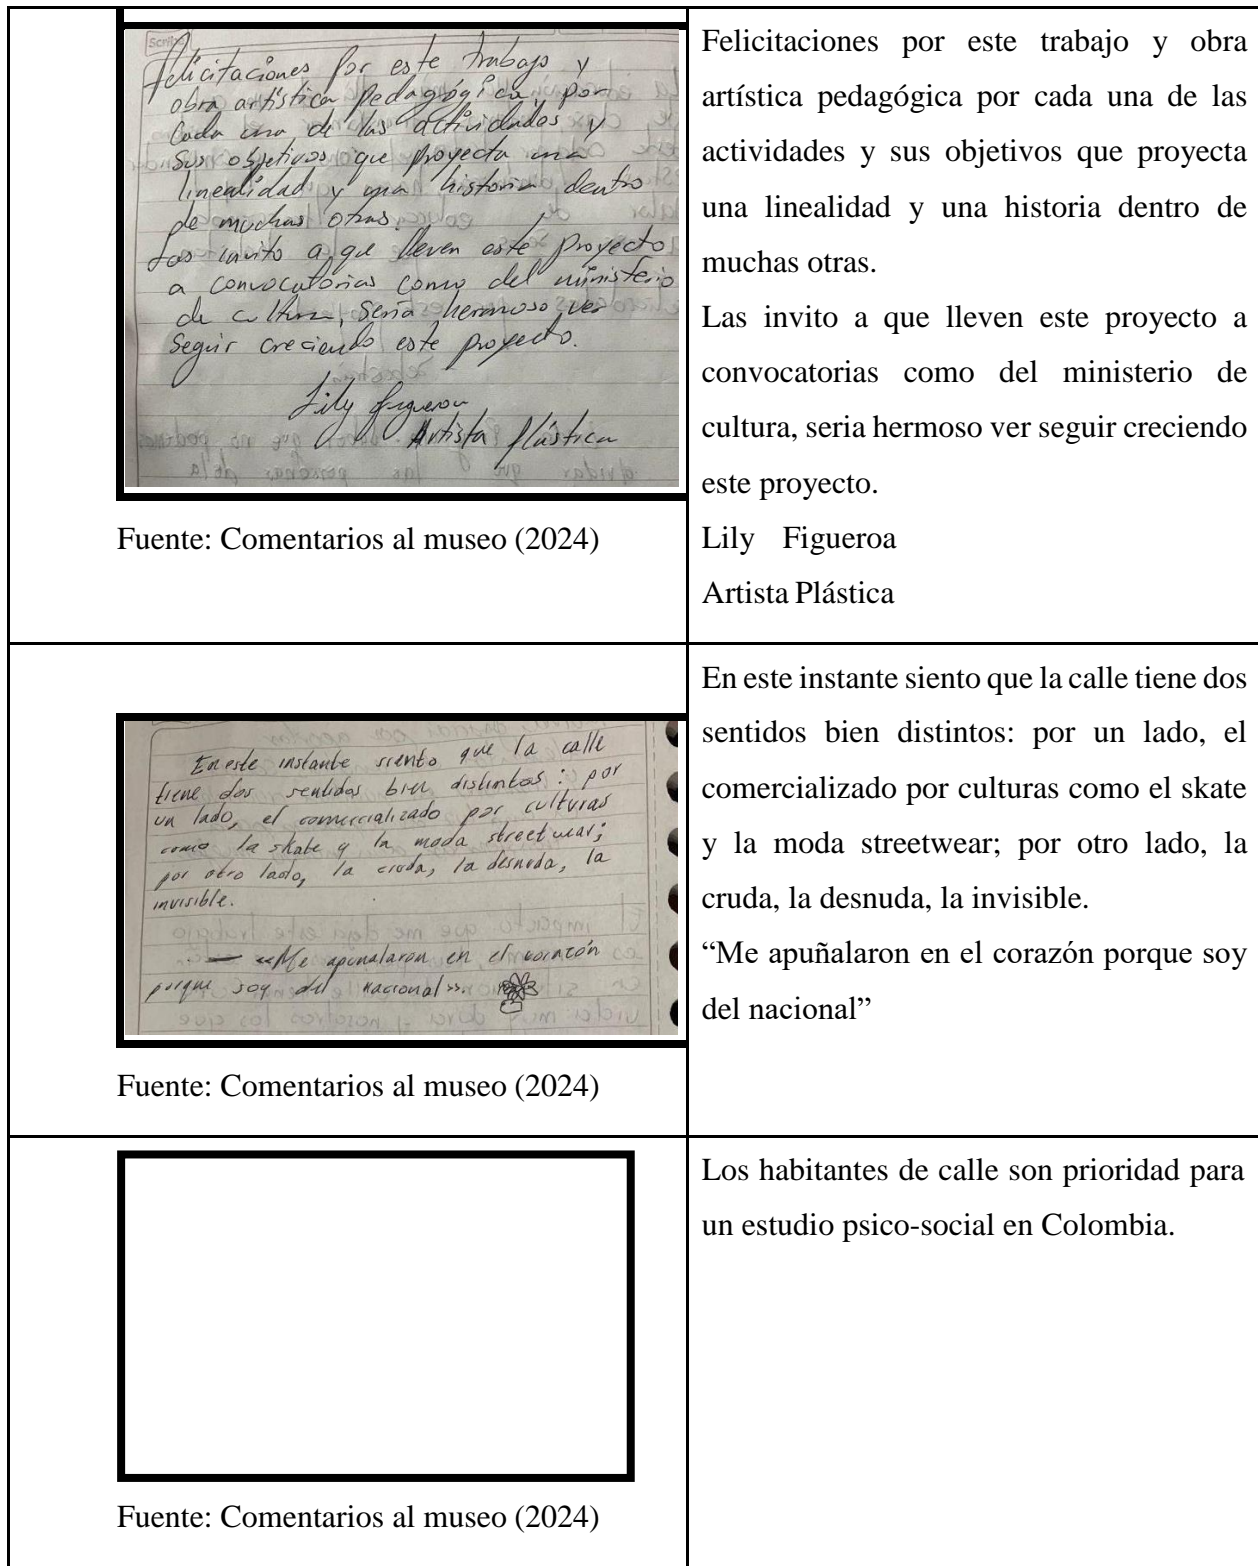 Scri
Felicitaciones por este trabajo y
obra artística pedagógica, por
Cada una de las actividades y
Sus objetivos que proyecta una
linealidad y una historia dentro
de muchas otras.
Las invito a que lleven este proyecto
a convocatorias como del ministerio
de cultura, Sería hermoso ver
Seguir creciendo este proyecto.
Lily Figueroa
Artista Plástica
Fuente: Comentarios al museo (2024)
Felicitaciones por este trabajo y obra
artística pedagógica por cada una de las
actividades y sus objetivos que proyecta
una linealidad y una historia dentro de
muchas otras.
Las invito a que lleven este proyecto a
convocatorias como del ministerio de
cultura, seria hermoso ver seguir creciendo
este proyecto.
Lily Figueroa
Artista Plástica
En este instante siento que la calle
tiene dos sentidos bien distintos: por
un lado, el comercializado por culturas
como la skate y la moda streetwear;
por otro lado, la cruda, la desnuda, la
invisible.
«Me apuñalaron en el corazón
porque soy del nacional».
Fuente: Comentarios al museo (2024)
En este instante siento que la calle tiene dos
sentidos bien distintos: por un lado, el
comercializado por culturas como el skate
y la moda streetwear; por otro lado, la
cruda, la desnuda, la invisible.
“Me apuñalaron en el corazón porque soy
del nacional”
Fuente: Comentarios al museo (2024)
Los habitantes de calle son prioridad para
un estudio psico-social en Colombia.